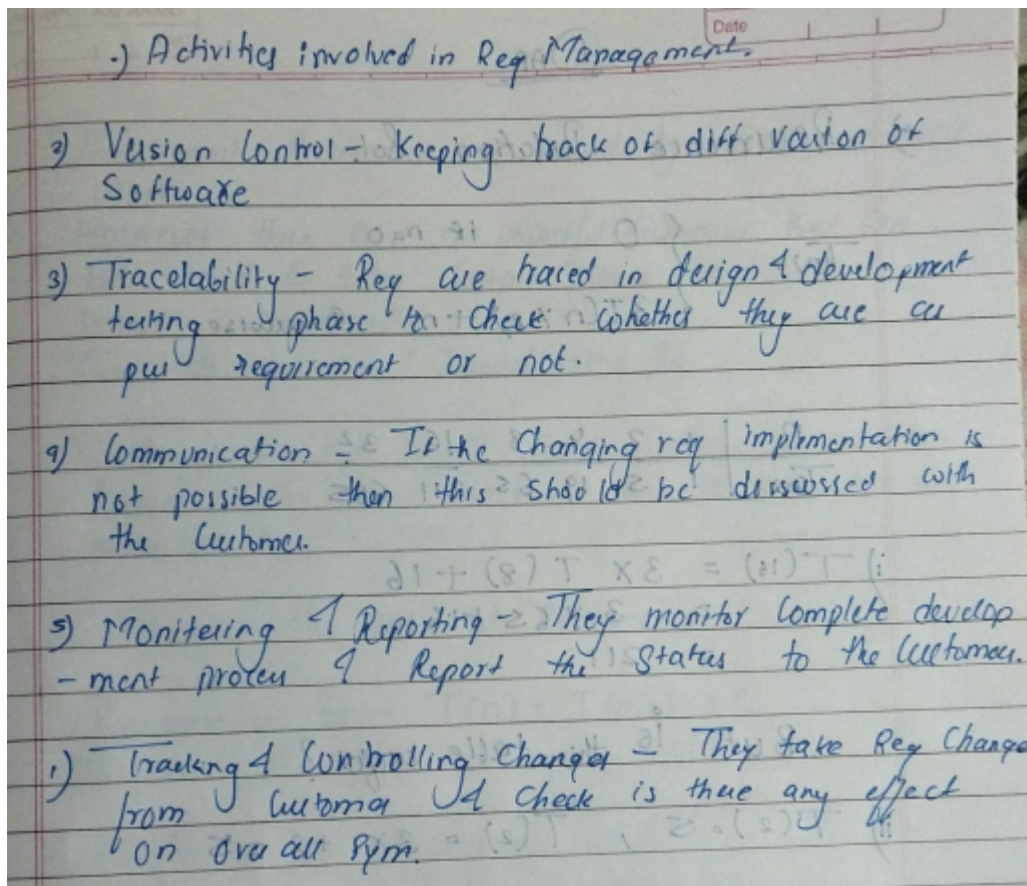 Date
.) Activities involved in Req Management.
2) Version Control - Keeping track of diff vaution of
Software
3) Tracelability - Req are traced in design & development
testing phase to Check whether they are as
per requirement or not.
4) Communication - If the Changing req implementation is
not possible then this should be disscussed with
the Customer.
5) Monitering & Reporting - They monitor Complete develop
- ment process & Report the Status to the Customer.
1) Tracking & Controlling Changes - They take Req Change
from Customer & Check is there any effect
on over all Sym.